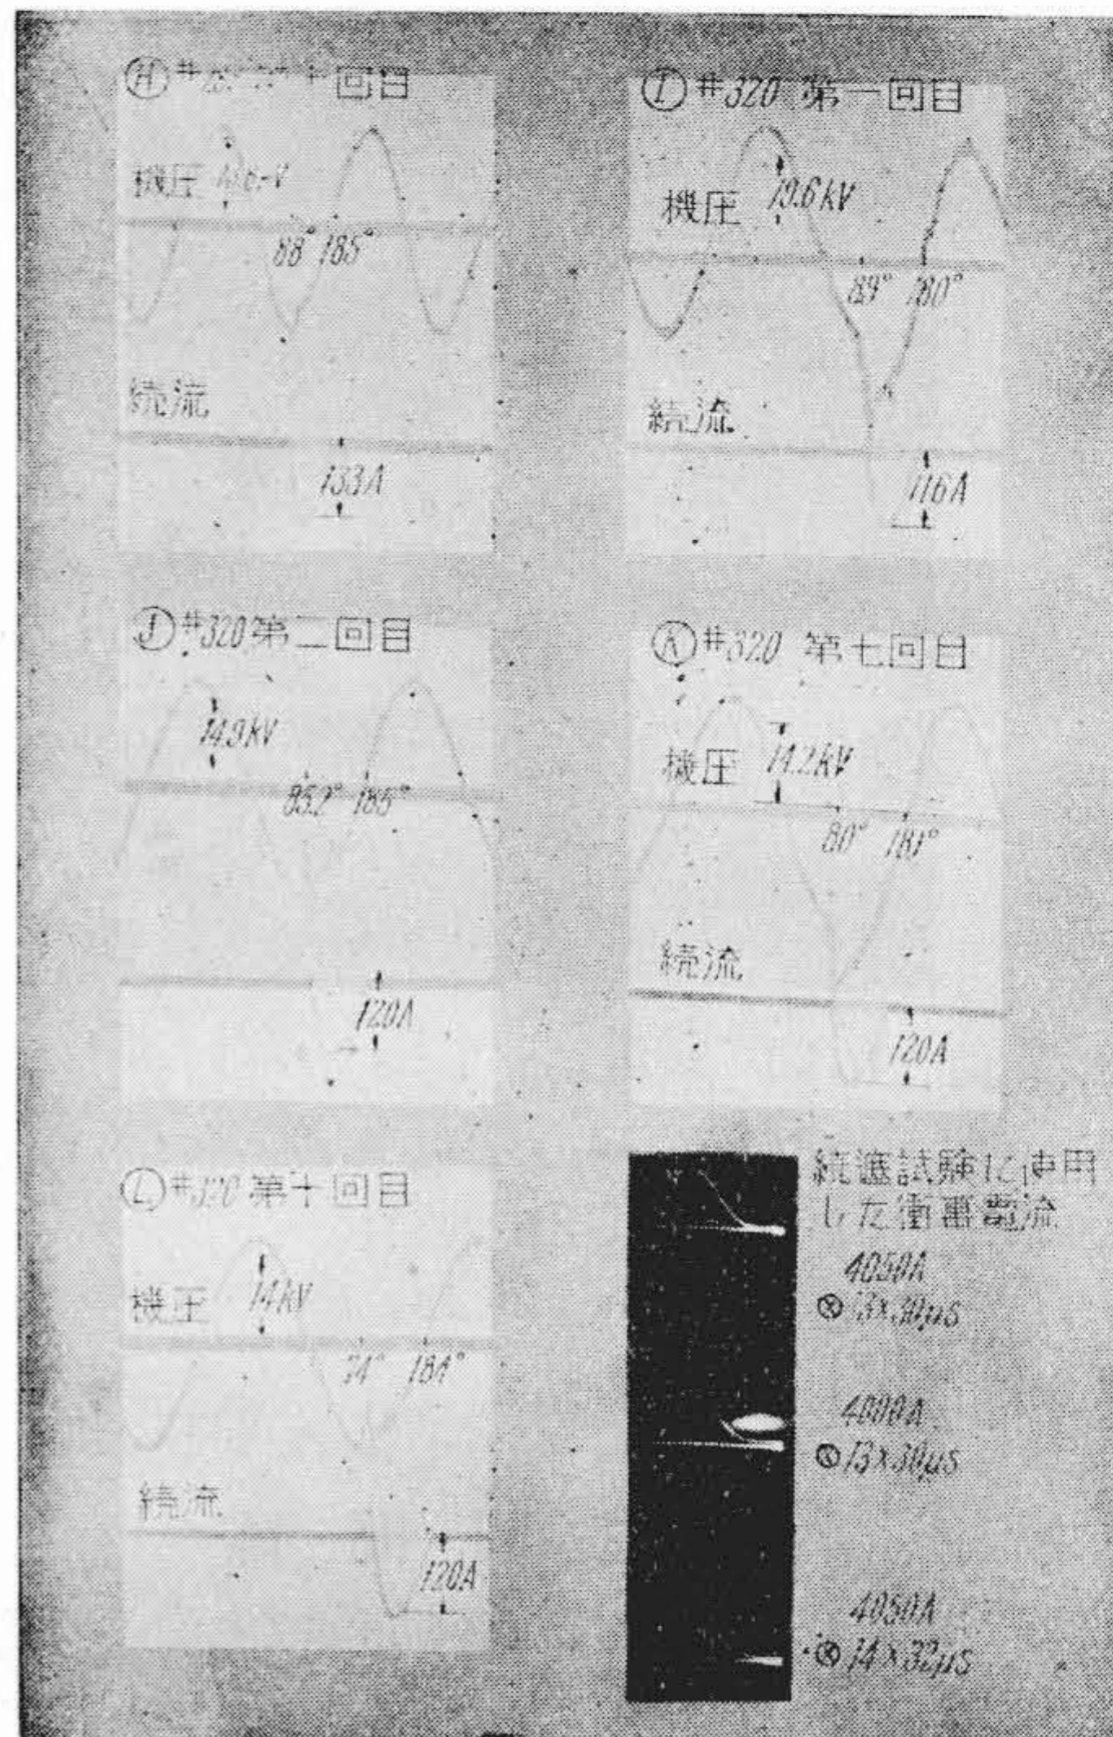 Ⓗ # 十回目
機圧
88° 185°
続流
133A
Ⓘ #320 第一回目
機圧 19.6kV
89° 180°
続流
116A
Ⓙ #320 第二回目
14.9kV
85.2° 185°
120A
Ⓚ #320 第七回目
機圧 14.2kV
80° 181°
続流
120A
Ⓛ #320 第十回目
機圧 14kV
74° 184°
続流
120A
続遮試験に使用
した衝撃電流
4050A
⊗ 13×30μs
4000A
⊗ 13×30μs
4050A
⊗ 14×32μs